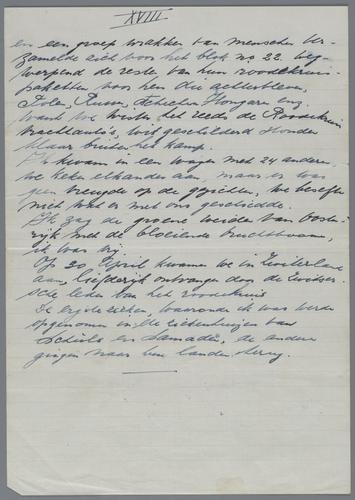 XVIII
en een groep wrakken van menschen ver-
zamelde zich voor het blok no 22 weg-
werpend de reste van hun roodekruis-
paketten voor hen die achterbleven,
Polen, Russen, Tchechen, Hongaren enz.
want we wisten het reeds de Roodekruis
vrachtauto's, wit geschilderd stonden
klaar buiten het kamp.
Ik kwam in een wagen met 24 anderen,
we keken elkander aan, maar er was
geen vreugde op de gezichten, we beseften
niet wat er met ons geschiedde.
Ik zag de groene weiden van Oosten-
rijk met de bloeiende vruchtboomen,
ik was vrij.
Op 30 April kwamen we in Zwitserland
aan, liefderijk ontvangen door de Zwitser-
sche leden van het roodekruis
De ergste zieken, waaronder ik was werden
opgenomen in de ziekenhuizen van
Schuls en Samaden, de andere
gingen naar hun landen terug.